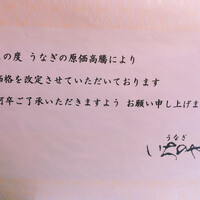 の度 うなぎの原価高騰により
価格を改定させていただいております
何卒ご了承いただきますよう お願い申し上げま
うなぎ
いちのや